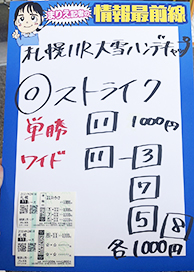 まりえ記者の 情報最前線
札幌11R大雪ハンデキャップ
◎ストライク
単勝 11 1000円
ワイド 11-3
7
5 8
各1000円